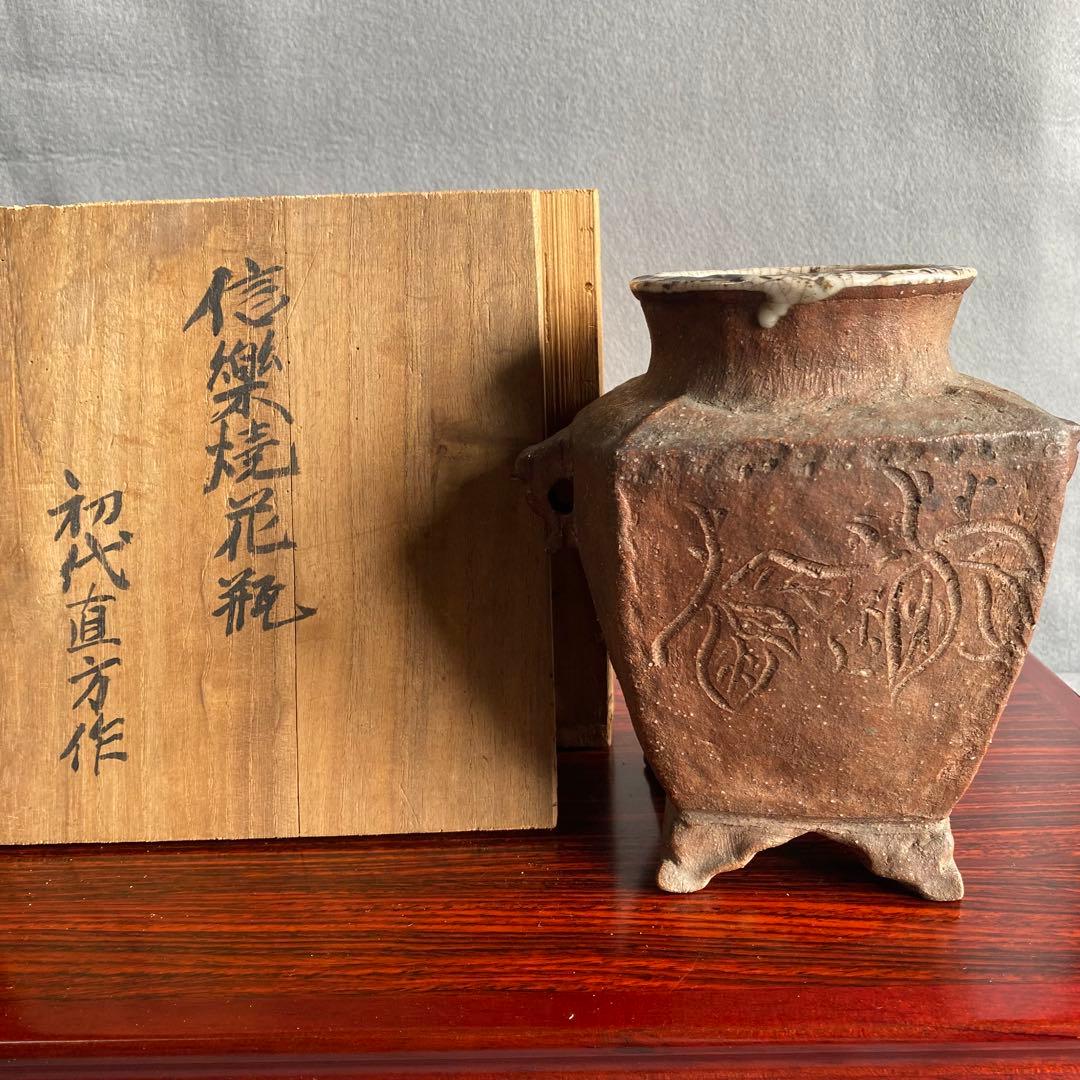 信樂燒花瓶
初代直方作